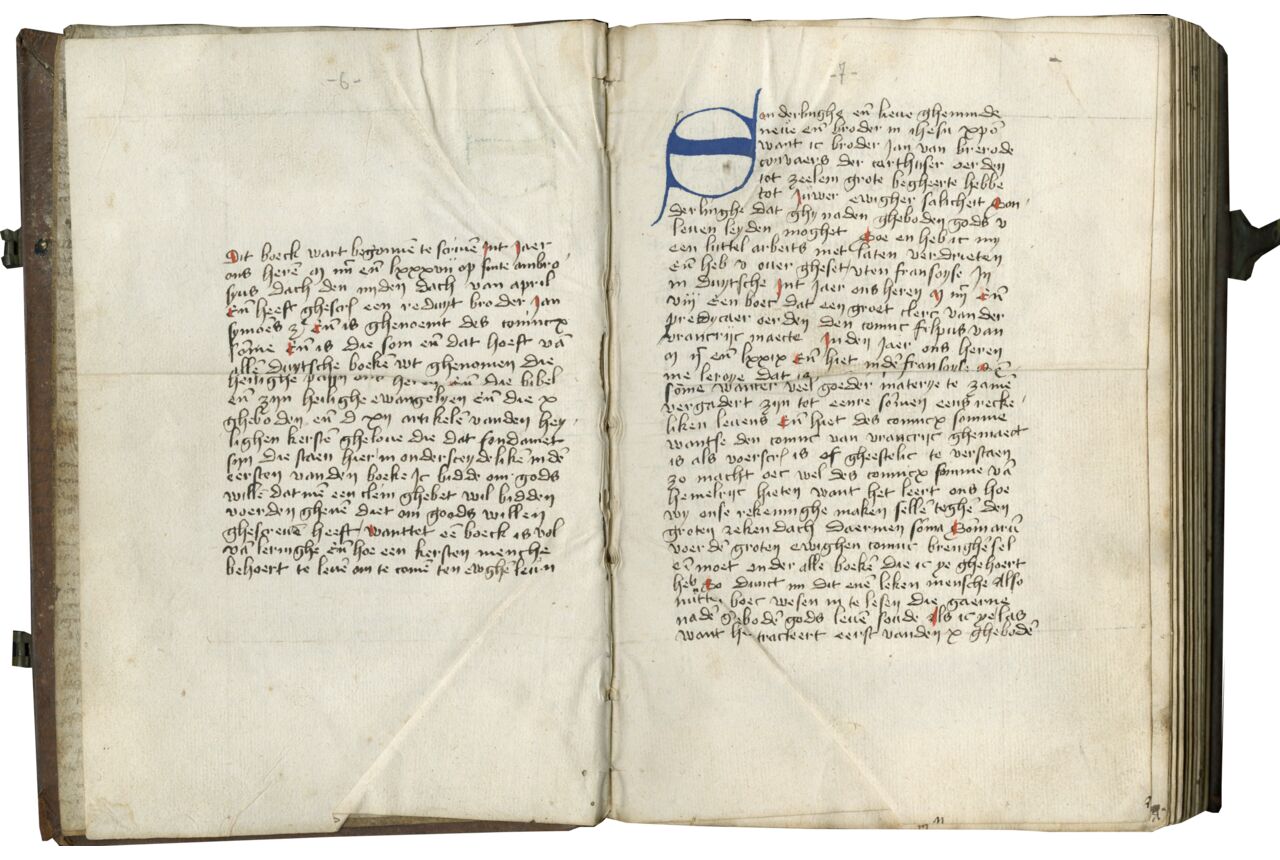 -6-
Dit boeck wart begonnen te scriuen Int Jaer
ons heren M iiij en̄ lxxxvij op sinte ambro
sius dach den iiijden dach van april
En̄ heeft ghescr een reduyt broder Jan
symoēs z En̄ is ghenoemt des conincx
sōme En̄ is die som en̄ dat hoeft vā
allē duytsche boekē wt ghenomen die
heilighe en̄ die bibel
en̄ zijn heilighe ewangelyen En̄ die x
gheboden en̄ d xij artikelē vanden hey
lighen kerstē gheloue die dat fondamēt
sijn die staen hier in onderscheydelikē in dē
eersten vanden boeke Ic bidde om gods
wille dat mē een clein ghebet wil bidden
voer den ghenē diet om goods willen
ghescreuē heeft wanttet eē boeck is vol
vā leringhe en̄ hoe een kersten mensche
behoert te leuē om te comē ten ewghē leuen
-7-
Sonderlinghe en̄ lieue gheminde
neue en̄ broder in ihesu xpō
want ic broder Jan van brerode
convaers der carthuser oerden
tot zeelem grote begheerte hebbe
tot Juwer ewigher salicheit Son
derlinghe dat ghy naden gheboden gods v
leuen leyden moghet Soe en heb ic my
een luttel arbeits niet laten verdrieten
En̄ heb v ouer gheset vten fransoyse In
in duytsche Int Jaer ons heren M iiij En̄
viij Een boec dat een groet clerc van der
predycaer oerden den coninc filpus van
vrancrijc maecte In den Jaer ons heren
M ij en̄ lxxix En̄ hiet indē fransoyse
me leroye dat is
sōme wanter veel goeder materye te zamē
vergadert zijn tot eenre sōmen eens recke
liken leuens En̄ hiet des conincx somme
wantse den coninc van vrancrijc ghemaect
is als voerscr is of gheestelic te verstaen
zo macht oec wel des conincx somme vā
hemelrijc hieten want het leert ons hoe
wy onse rekeninghe maken sellē teghē den
groten zekendach daermen
voer dē groten ewighen coninc brenghē sel
en̄ moet onder alle boekē die ic ye ghehoert
heb So dunct mi dit enē leken mensche Also
nutten boec wesen in te lesen die gaerne
nadē Ghebodē gods leuē soude Als ic ye las
want he tracteert eerst vanden x ghebodē